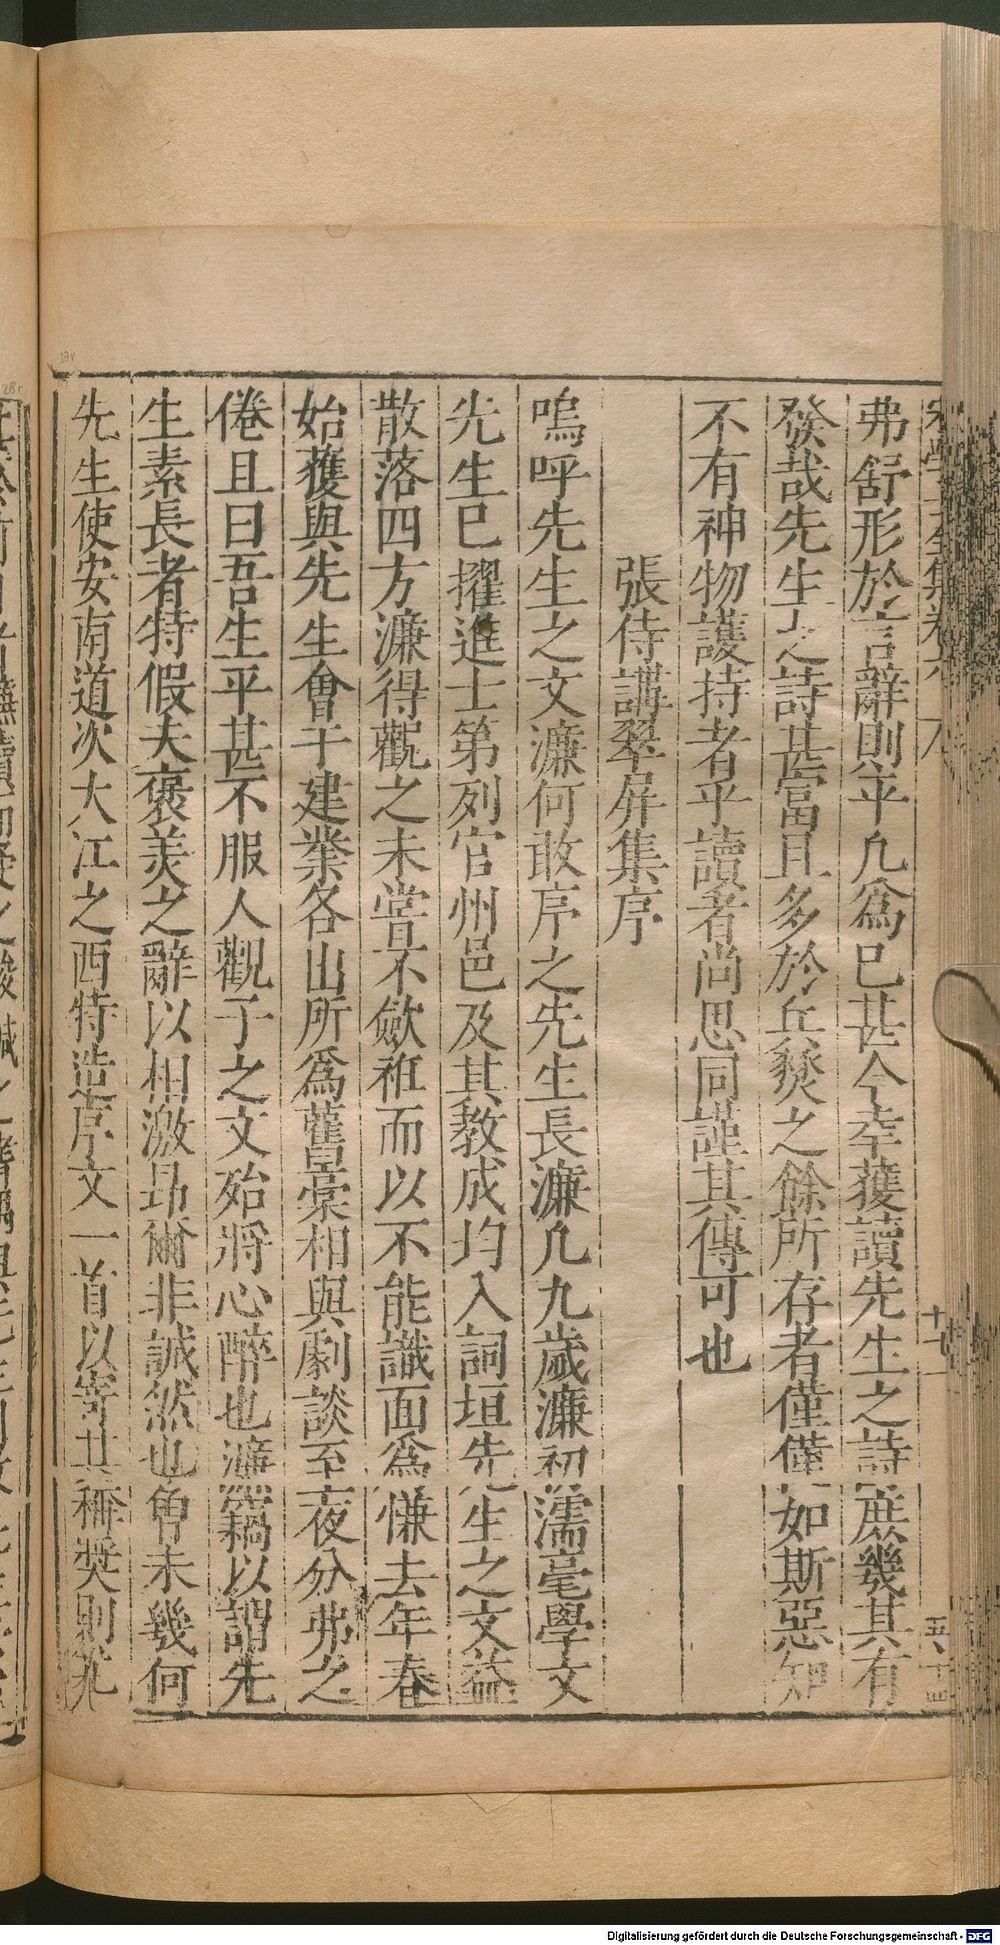 弗舒形於言辭則平凡爲已甚今幸獲讀先生之詩庶幾其有
發哉先生之詩甚富且多於兵燹之餘所存者僅僅如斯惡知
不有神物護持者乎讀者尚思同謹其傳可也
張侍講翠屏集序
嗚呼先生之文濂何敢序之先生長濂凡九歲濂初濡毫學文
先生已擢進士第列官州邑及其教成均入詞垣先生之文益
散落四方濂得觀之未嘗不斂衽而以不能識面爲慊去年春
始獲與先生會于建業各出所爲舊稾相與劇談至夜分弗之
倦且曰吾生平甚不服人觀子之文殆將心醉也濂竊以謂先
生素長者特假夫褒美之辭以相激昂爾非誠然也曾未幾何
先生使安南道次大江之西特造序文一首以寄其稱奬則尤
十七
Digitalisierung gefördert durch die Deutsche Forschungsgemeinschaft - DFG